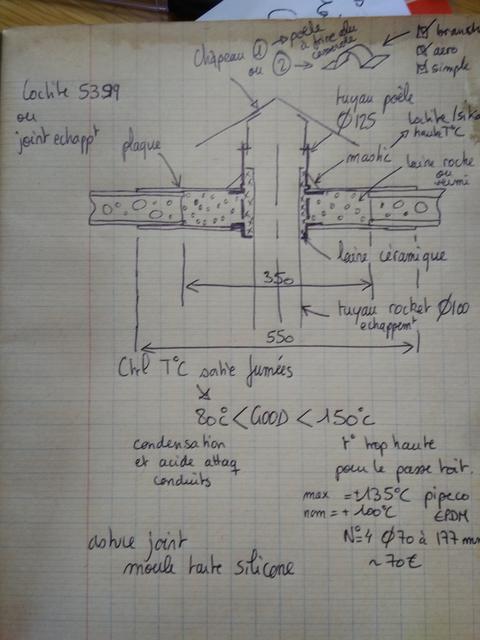 Chapeau ① → poêle
à frire ou
casserole
ou ② →
branché
aéro
simple
Loctite 5399
ou
joint echappt
tuyau poêle
Ø125
plaque
mastic
Loctite/sika
haute T°C
laine roche
ou
laine céramique
350
tuyau rocket Ø100
echappemt
550
Ctrl T°C sortie fumées
80°C < GOOD < 150°C
condensation
et acide attaq
conduits
T° trop haute
pour le passe toit.
max = +135°C pipeco
nom = +100°C EPDM
N°4 Ø70 à 177 mm
~ 70€
astuce joint
moule tarte silicone